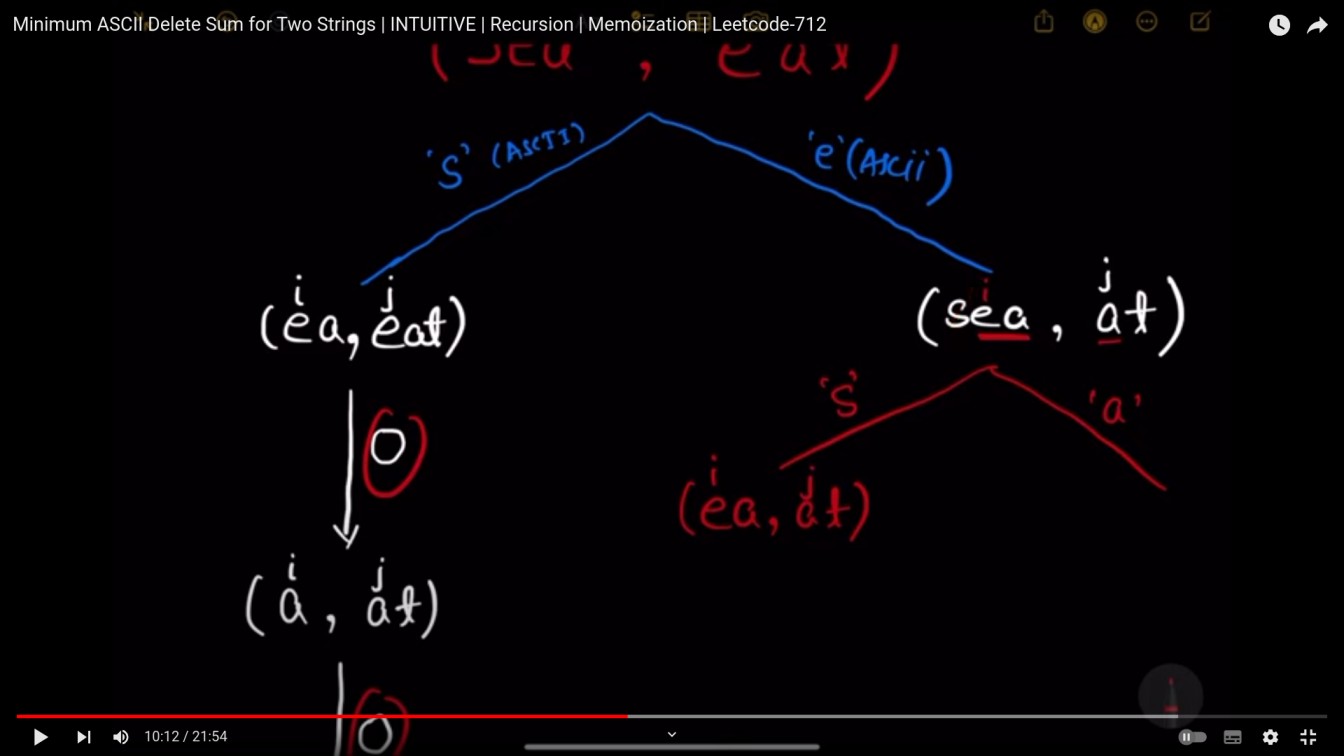 Minimum ASCII Delete Sum for Two Strings | INTUITIVE | Recursion | Memoization | Leetcode-712
(sea , eat)
's' (ASCII)
'e' (ASCii)
i j
(ea, eat)
i j
(sea , at)
0
's' 'a'
i j
(ea, at)
i j
(a , at)
0
10:12 / 21:54